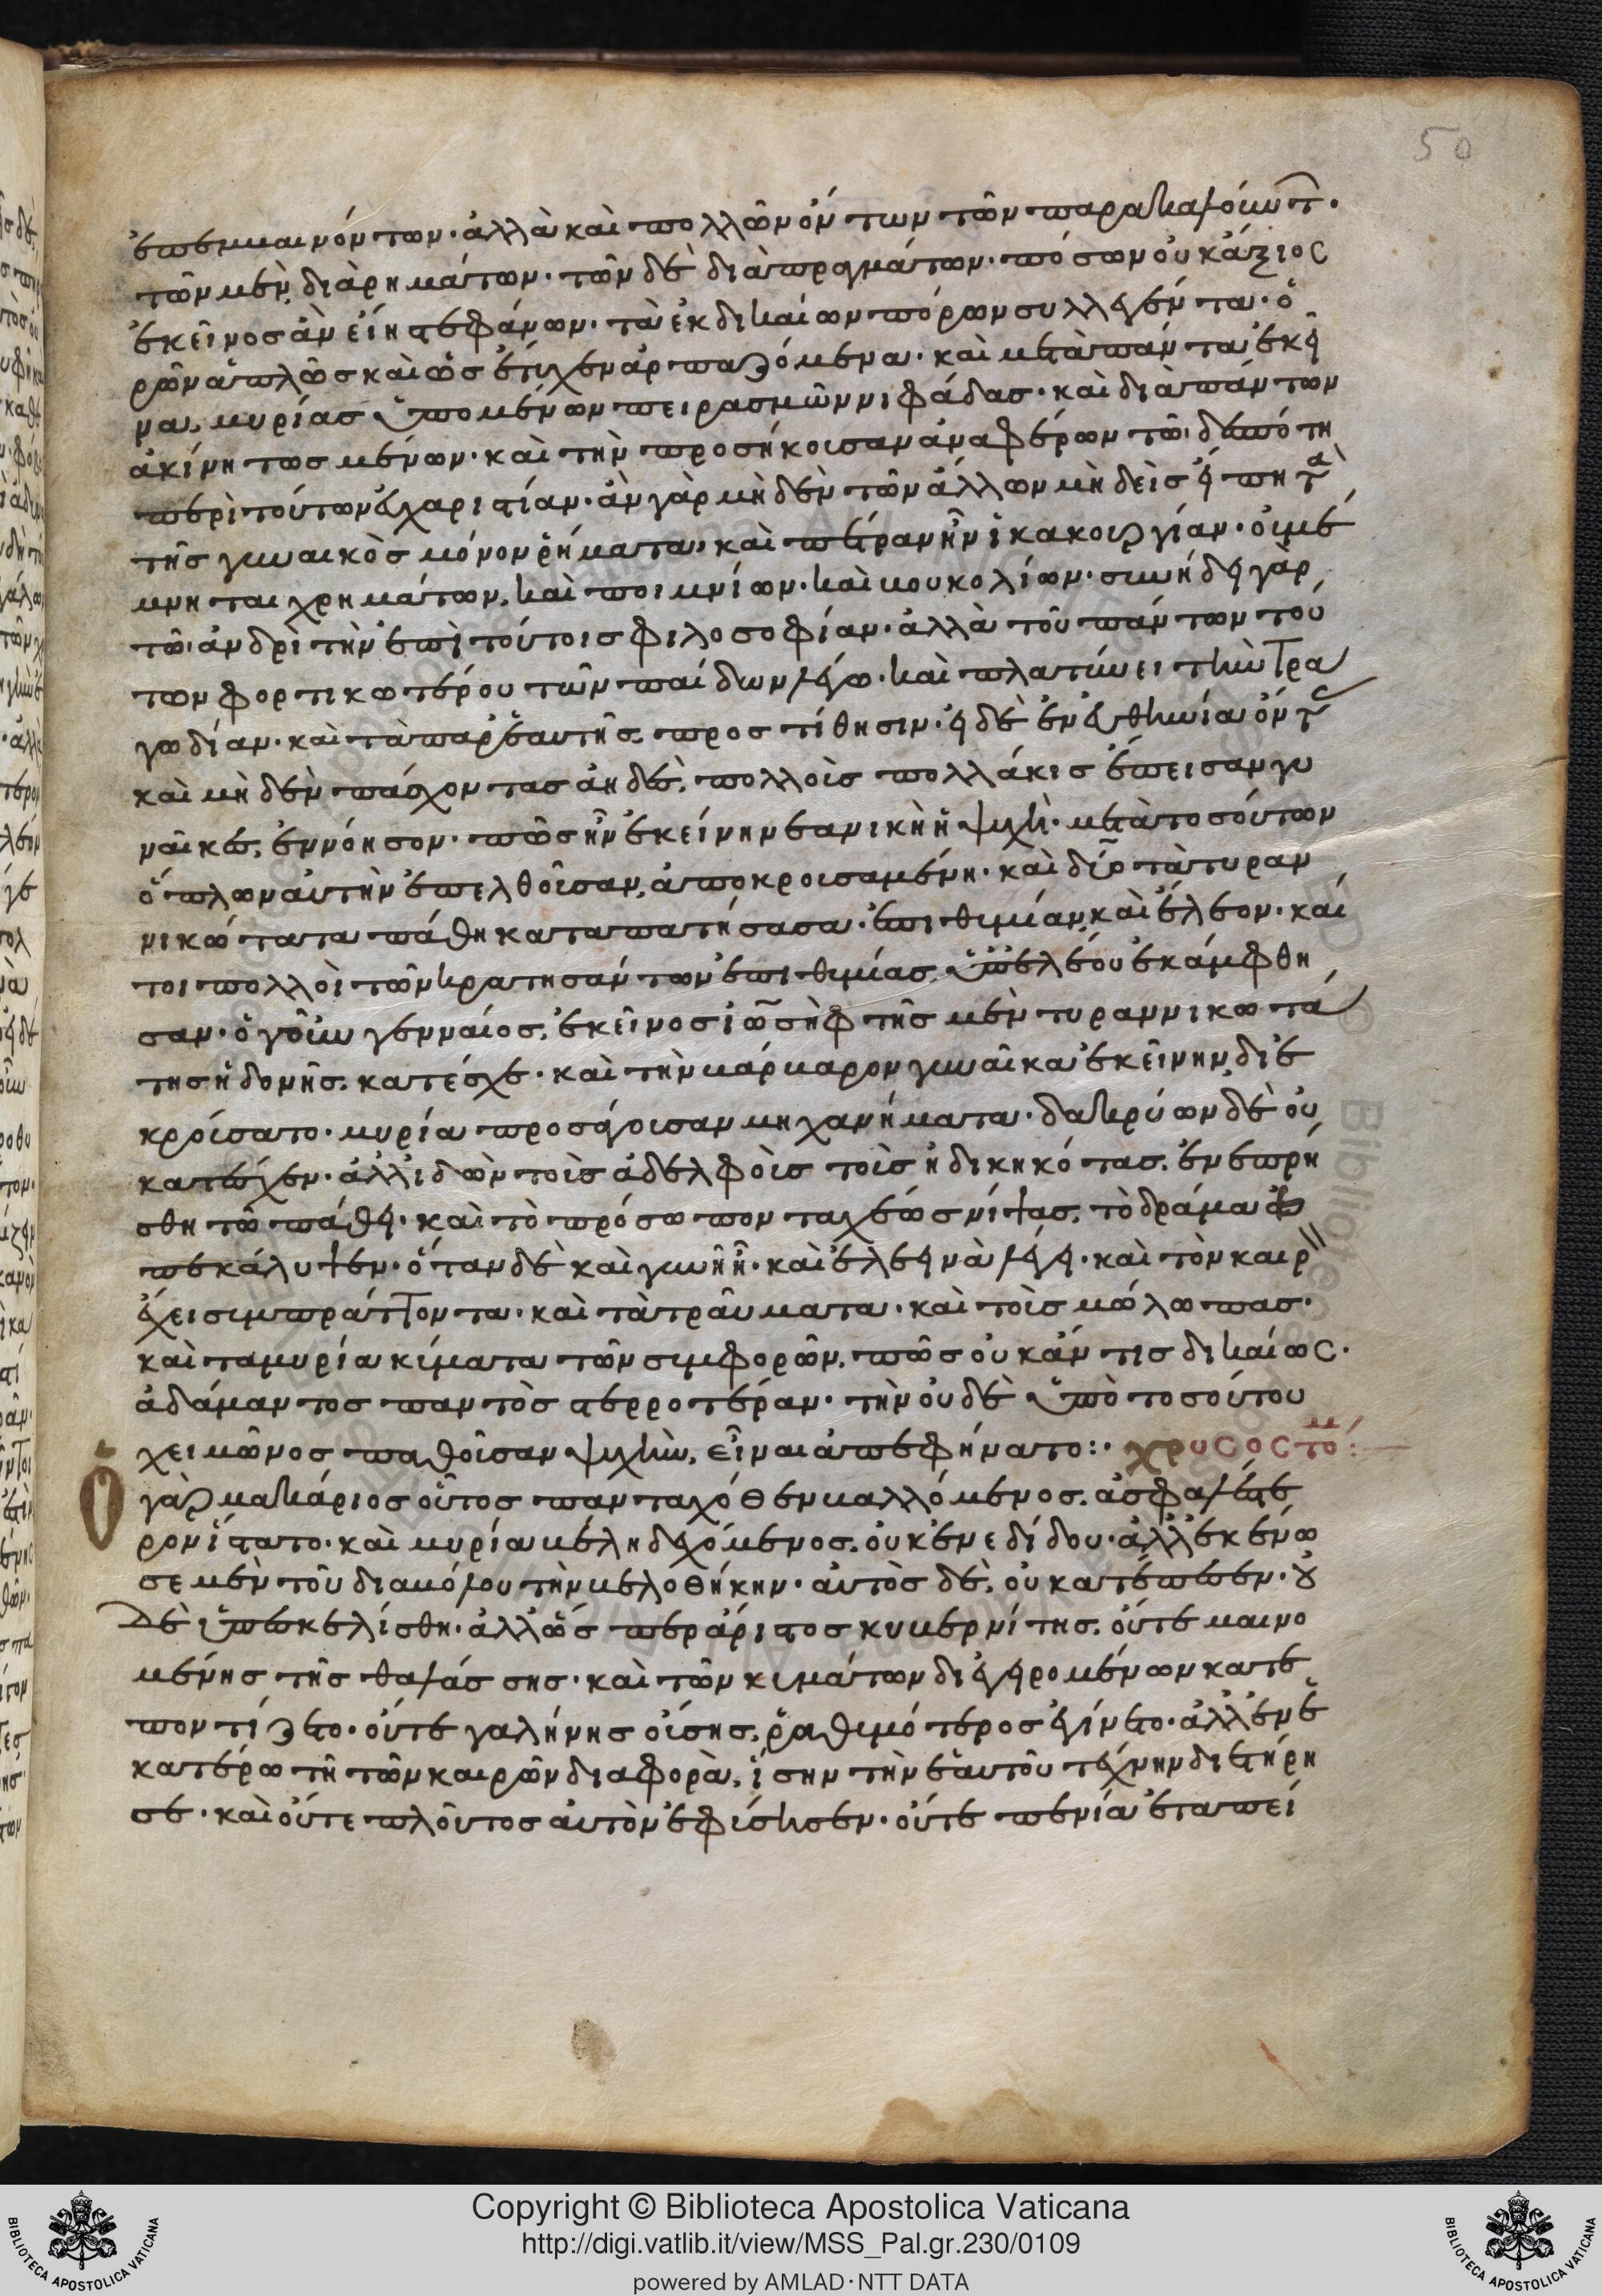 50
ἐπεμβαινόντων· ἀλλὰ καὶ πολλῶν ὄντων τῶν παρακαλούντ·
τῶν μὲν διὰ ρημάτων· τῶν δὲ διὰ πραγμάτων· πόσων οὐκ ἄξιος
ἐκεῖνος ἂν εἴη στεφάνων· τὰ ἐκ δικαίων πόρων συλλεγέντα· ὁ
ρῶν ἁπλῶς καὶ ὡς ἔτυχεν ἁρπαζόμενα· καὶ μετὰ πάντα ἐκεῖ
να, μυρίας ὑπομένων πειρασμῶν νιφάδας· καὶ διὰ πάντων
ἀκίνητως μένων· καὶ τὴν προσήκουσαν ἀναφέρων τῶ δεσπότη
περὶ τούτων εὐχαριστίαν· ἂν γὰρ μηδὲν τῶν ἄλλων μηδεὶς εἴπη τὰ
τῆς γυναικὸς μόνον ρήματα, καὶ πέτραν ἦν ἱκανὰ
μνηται χρημάτων, καὶ ποιμνίων· καὶ βουκολίων· συνήδει γὰρ
τῶ ἀνδρὶ τὴν ἐπὶ τούτοις φιλοσοφίαν· ἀλλὰ τοῦ πάντων του
των φορτικωτέρου τῶν παίδων λέγω· καὶ πλατύνει τὴν τρα
γωδίαν· καὶ τὰ παρ' ἑαυτῆς προστίθησιν· εἰ δὲ ἐν εὐθηνία ὄντ
καὶ μηδὲν πάσχοντας ἀηδὲς, πολλοὺς πολλάκις ἔπεισαν γυ
ναῖκες, ἐννόησον· πῶς ἦν ἐκείνη νεανικὴ ἡ ψυχὴ· μετὰ τοσούτων
ὅπλων αὐτὴν ἐπελθοῦσαν, ἀποκρουσαμένη· καὶ δύο τὰ τυραν
νικώτατα πάθη καταπατήσασα· ἐπιθυμίαν, καὶ ἔλεον· καί
τοι πολλοὶ τῶν κρατησάντων ἐπιθυμίας, ὑπ' ἐλέου ἐκάμφθη
σαν· ὁ γοῦν γενναῖος, ἐκεῖνος ἰωσὴφ τῆς μὲν τυραννικωτά
της ἡδονῆς κατέσχε· καὶ τὴν βάρβαρον γυναῖκα ἐκείνην διε
κρούσατο· μυρία προσάγουσαν μηχανήματα· δακρύων δὲ οὐ
κατέσχεν· ἀλλ' ἰδὼν τοὺς ἀδελφοὺς τοὺς ἠδικηκότας, ἐνεπρή
σθη τῶ πάθει· καὶ τὸ πρόσωπον ταχέως νίψας, τὸ δράμα
πεκάλυψεν· ὅταν δὲ καὶ γυνὴ ἦ· καὶ ἐλεεινὰ λέγη· καὶ τὸν καιρ
ἔχει συμπράττοντα· καὶ τὰ τραύματα· καὶ τοὺς μώλωπας·
καὶ τα μυρία κύματα τῶν συμφορῶν, πῶς οὐκ ἄν τις δικαίως·
ἀδάμαντος παντὸς στερροτέραν· τὴν οὐδὲ ὑπὸ τοσούτου
χειμῶνος παθοῦσαν ψυχὴν, εἶναι ἀπεφήνατο:· χρυσοστό:
Ὁ γὰρ μακάριος οὗτος πανταχόθεν βαλλόμενος, ἀσφαλέστε
ρον ἵστατο· καὶ μυρία βέλη δεχόμενος, οὐκ ἐνεδίδου· ἀλλ' ἐκένω
σε μὲν τοῦ διαβόλου τὴν βελοθήκην· αὐτὸς δὲ, οὐ κατέπεσεν· οὐ
δὲ ὑπεσκελίσθη· ἀλλ' ὥσπερ ἄριστος κυβερνίτης, οὔτε μαινο
μένης τῆς θαλάσσης· καὶ τῶν κυμάτων διεγειρομένων κατε
ποντίζετο· οὔτε γαλήνης οὔσης, ῥαθυμότερος ἐγίνετο· ἀλλ' ἐν ἑ
κατέρω τῆ τῶν καιρῶν διαφορὰ, ἴσην τὴν ἑαυτοῦ τέχνην διετήρη
σε· καὶ οὔτε πλοῦτος αὐτὸν ἐφύσησεν· οὔτε πενία ἐταπεί
Copyright © Biblioteca Apostolica Vaticana
http://digi.vatlib.it/view/MSS_Pal.gr.230/0109
powered by AMLAD·NTT DATA
BIBLIOTECA APOSTOLICA VATICANA
BIBLIOTECA APOSTOLICA VATICANA